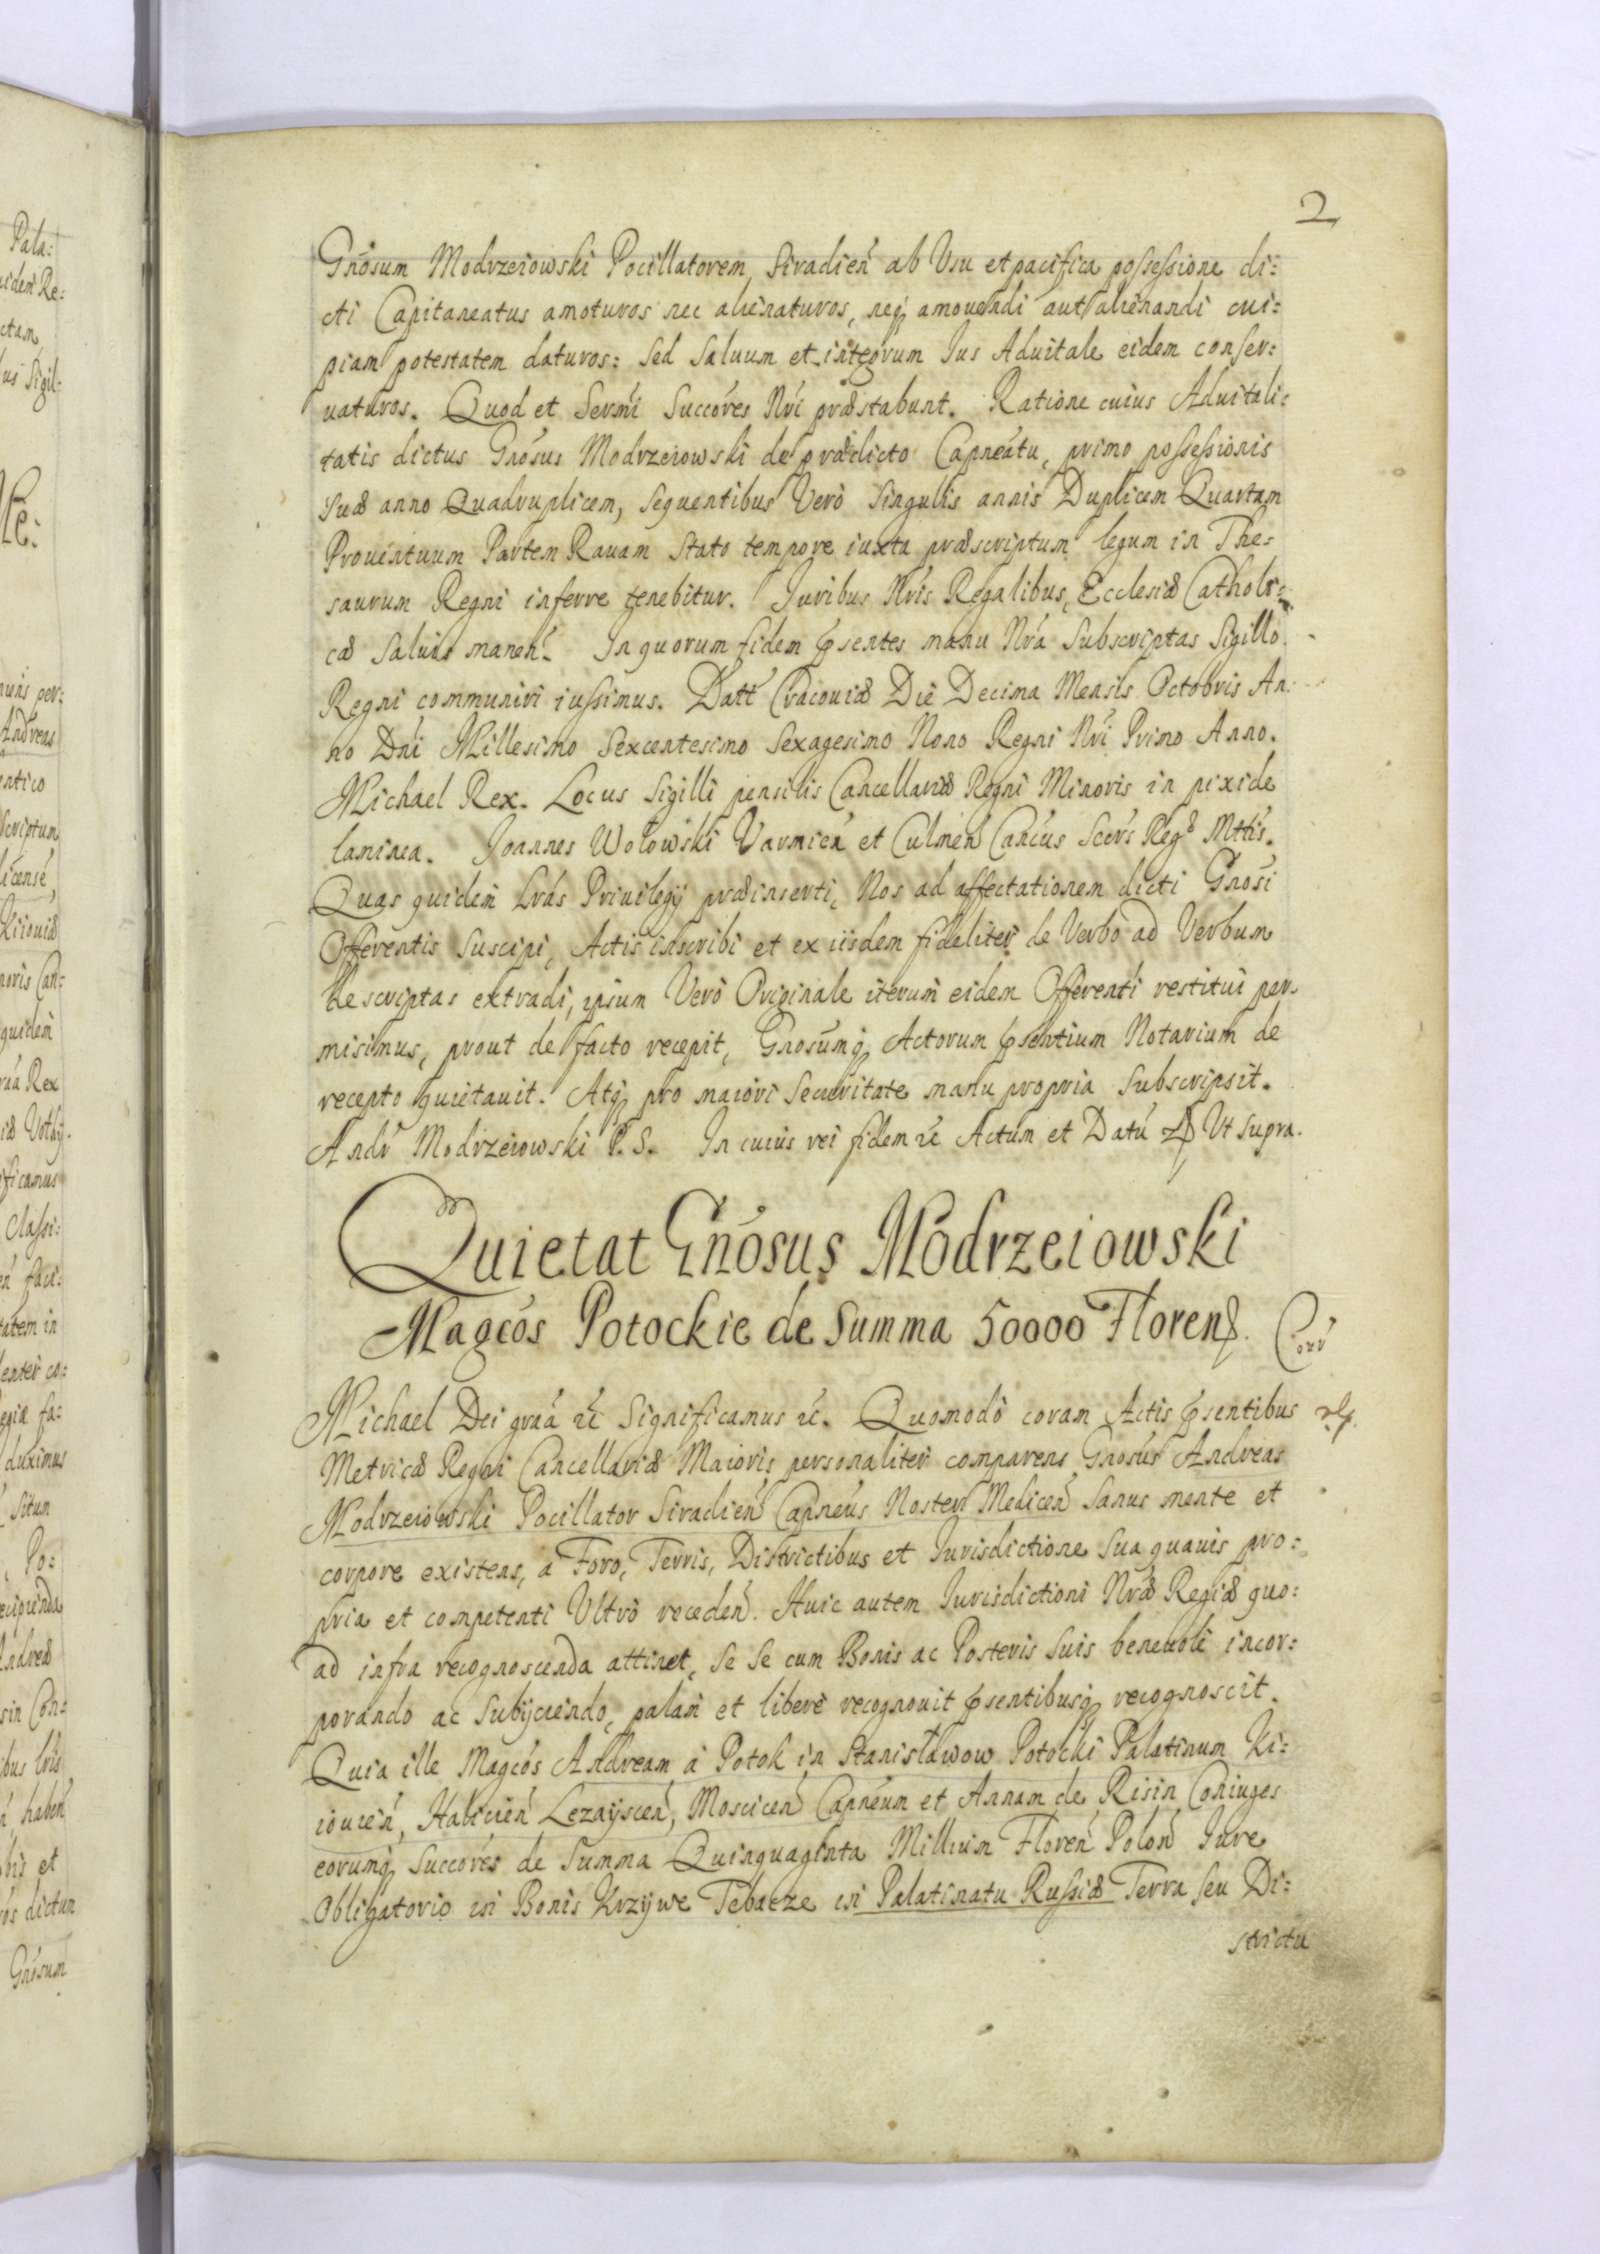 2
Gnosum Modrzeiowski Pocillatorem Siradień ab Usu et pacifica possessione di:
cti Capitaneatus amoturos nec alienaturos, neq amouendi aut alienandi cui:
piam potestatem daturos: sed saluum et integrum Ius Aduitale eidem conser:
uaturos. Quod et Sermi Succores Nri præstabunt. Ratione cuius Aduitali:
tatis dictus Gnosus Modrzeiowski de prædicto Capneatu, primo possessionis
suæ anno Quadruplicem, sequentibus Verò singulis annis Duplicem Quartam
Prouentuum Partem Rauam stato tempore iuxta præscriptum legum in The:
saurum Regni inferre tenebitur. Juribus Nris Regalibus, Ecclesiæ Catholi:
cæ saluis maneń. In quorum fidem psentes manu Nrá subscriptas Sigillo
Regni communiri iussimus. Datt Cracouiæ Die Decima Mensis Octobris An:
no Dni Millesimo Sexcentesimo Sexagesimo Nono Regni Nri Primo Anno.
Michael Rex. Locus Sigilli pensilis Cancellariæ Regni Minoris in pixide
laminea. Joannes Wołowski Varmień et Culmeń Cancus Scers Reg Mttis.
Quas quidem Lrás Priuilegij præinserti, Nos ad affectationem dicti Gnosi
Offerentis suscipi, Actis inscribi et ex iisdem fideliter de Verbo ad Verbum
descriptas extradi, ipsum Verò Originale iterum eidem Offerenti restitui per
misimus, prout de facto recepit, Gnosumq Actorum psentium Notarium de
recepto quietauit. Atq pro maiori securitate manu propria subscripsit.
Andr Modrzeiowski P. S. In cuius rei fidem &c Actum et Datú Ut supra.
Quietat Gnosus Modrzeiowski
Magcos Potockie de Summa 50000 Floren.
Michael Dei graá &c Significamus &c. Quomodò coram Actis psentibus
Metricæ Regni Cancellariæ Maioris personaliter comparens Gnosus Andreas
Modrzeiowski Pocillator Siradień Capneus Noster Mediceń sanus mente et
corpore existens, a Foro, Terris, Districtibus et Jurisdictione sua quauis pro:
pria et competenti Ultrò recedeń. Huic autem Jurisdictioni Nræ Regiæ quo:
ad infra recognoscenda attinet, se se cum Bonis ac Posteris suis beneuolè incor:
porando ac subijciendo, palam et liberè recognouit psentibusq recognoscit.
Quia ille Magcos Andream à Potok in Stanisławow Potocki Palatinum Ki:
iouień, Halicień Lezaysceń, Mosciceń Capneum et Annam de Risin Coniuges
eorumq Succores de Summa Quinquaginta Millium Floreń Poloń Jure
Obligatorio in Bonis Krzywe Tebacze in Palatinatu Russiæ Terra seu Di:
strictu